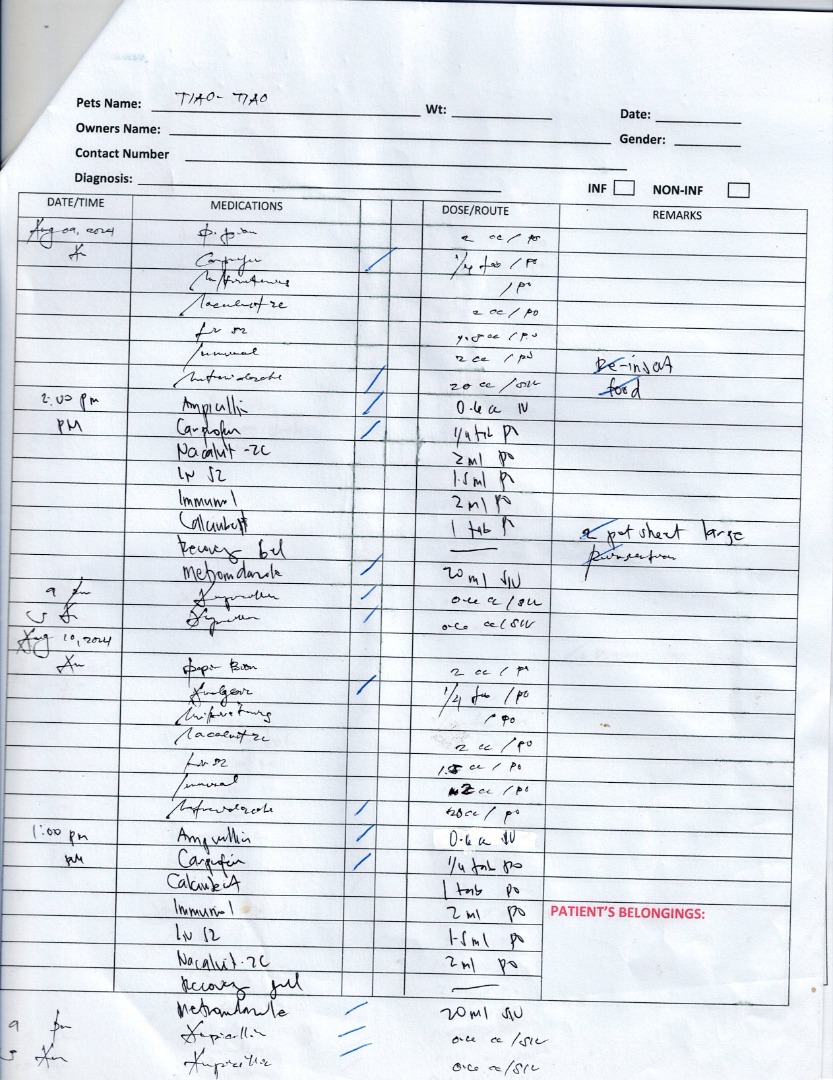 Pets Name: TIAO-TIAO Wt: Date:
Owners Name: Gender:
Contact Number
Diagnosis: INF NON-INF
DATE/TIME MEDICATIONS DOSE/ROUTE REMARKS
Aug 09, 2024 2 cc / po
1/4 tab / po
/ po
Nacalvit 2c 2 cc / po
LIV 52 cc / po
Immunol 2 cc / po Re-insert
Metronidazole 20 cc / SIV food
2:00 pm Ampicillin 0.6 cc IV
PM Carprofen 1/4 tab po
Nacalvit-2C 2 ml po
LIV 52 1.5 ml po
Immunol 2 ml po
Calcuvet 1 tab po 2 pet sheet large
Recovery Gel —
Metronidazole 20 ml SIV
9 pm Ampicillin cc / SIV
5 Am Ampicillin cc / SIV
Aug 10, 2024
Am 2 cc / po
1/4 tab / po
/ po
Nacalvit 2c 2 cc / po
LIV 52 1.5 cc / po
Immunol 2 cc / po
Metronidazole 20 cc / po
1:00 pm Ampicillin 0.6 cc SIV
PM Carprofen 1/4 tab po
Calcuvet 1 tab po
Immunol 2 ml po PATIENT'S BELONGINGS:
LIV 52 1.5 ml po
Nacalvit-2C 2 ml po
Recovery gel —
Metronidazole 20 ml SIV
9 pm Ampicillin cc / SIV
5 Am Ampicillin cc / SIV